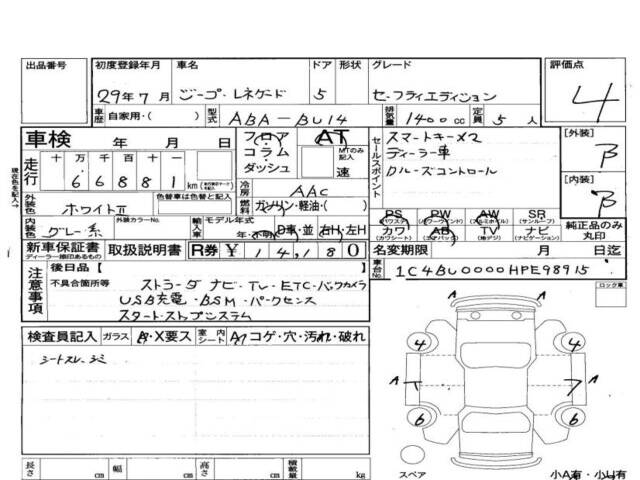 出品番号 初度登録年月 車名 ドア 形状 グレード 評価点
29年7月 ジープ・レネゲード 5 セーフティエディション 4
車歴 自家用・( ) 型式 ABA-BU14 排気量 1400cc 定員 5人
車検 年 月 日 フロア コラム ダッシュ AT MTのみ記入 速 セールスポイント スマートキー×2 [外装] B
走行 十 万 千 百 十 一 ディーラー車
6 6 8 8 1 km クルーズコントロール
現在色を記入→
外装色 ホワイトII 色替車は色替と記入 冷房 AAC [内装] B
燃料 ガソリン・軽油・( )
PS PW AW SR
(パワステ) (パワーウインド) (アルミホイル) (サンルーフ)
内装色 グレー系 外装カラーNo. 輸入車 モデル年式 年・不明 D車・並 右H・左H カワ AB TV ナビ 純正品のみ丸印
(カワシート) (エアバッグ) (地デジ) (ナビゲーション)
新車保証書 取扱説明書 R券 ¥ 14,180 名変期限 月 日迄
ディーラー捺印あるもの
注意事項 後日品[ ] 車台No. 1C4BU0000HPE98915
不具合箇所等 ストラーダ ナビ・TV・ETC・バックカメラ
USB充電・BSM・パークセンス
スタートストップシステム
ロック車
検査員記入 ガラス キズ・X要ス 室内シート A コゲ・穴・汚れ・破れ
シートスレ・シミ
4 4
A A
6 6
スペア 小A有・小U有
長さ cm 幅 cm 高さ cm 積載量 kg